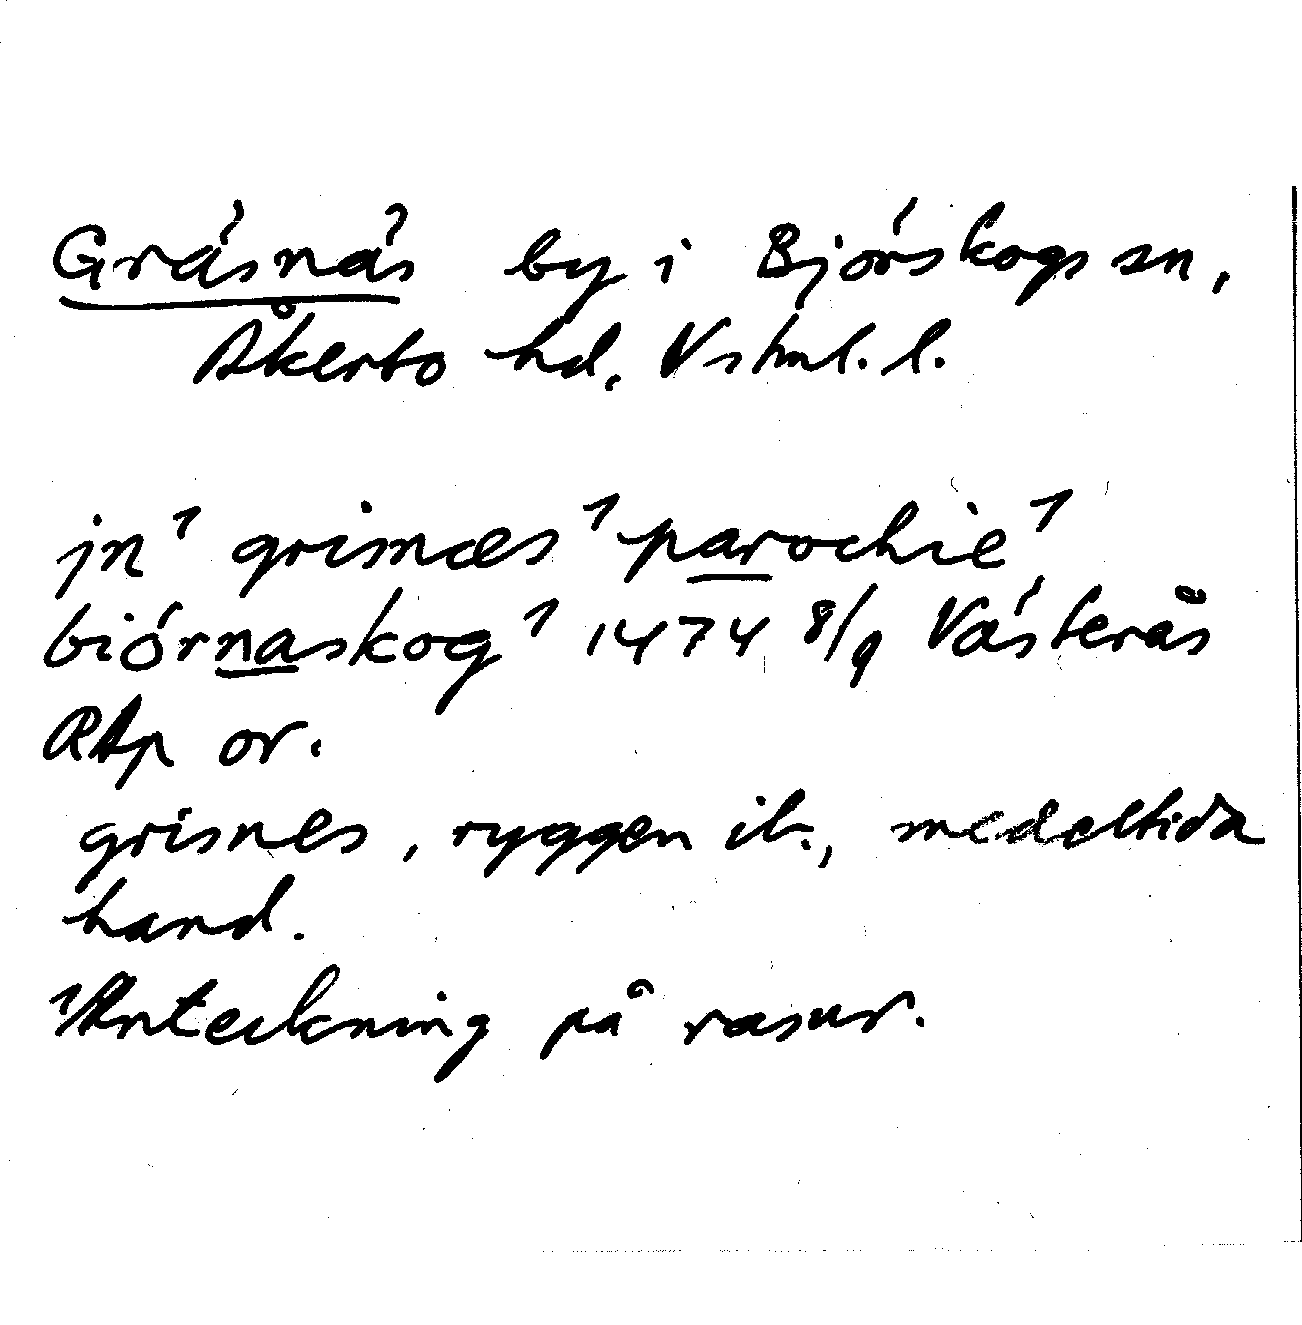 Gräsnäs by i Björskogs sn,
Åkerbo hd, Vstml. l.
jn¹ grisnæs¹ parochie¹
biörnaskog¹ 1474 8/9 Västerås
RAp or.
grisnes, ryggen ib., medeltida
hand.
¹Anteckning på rasur.